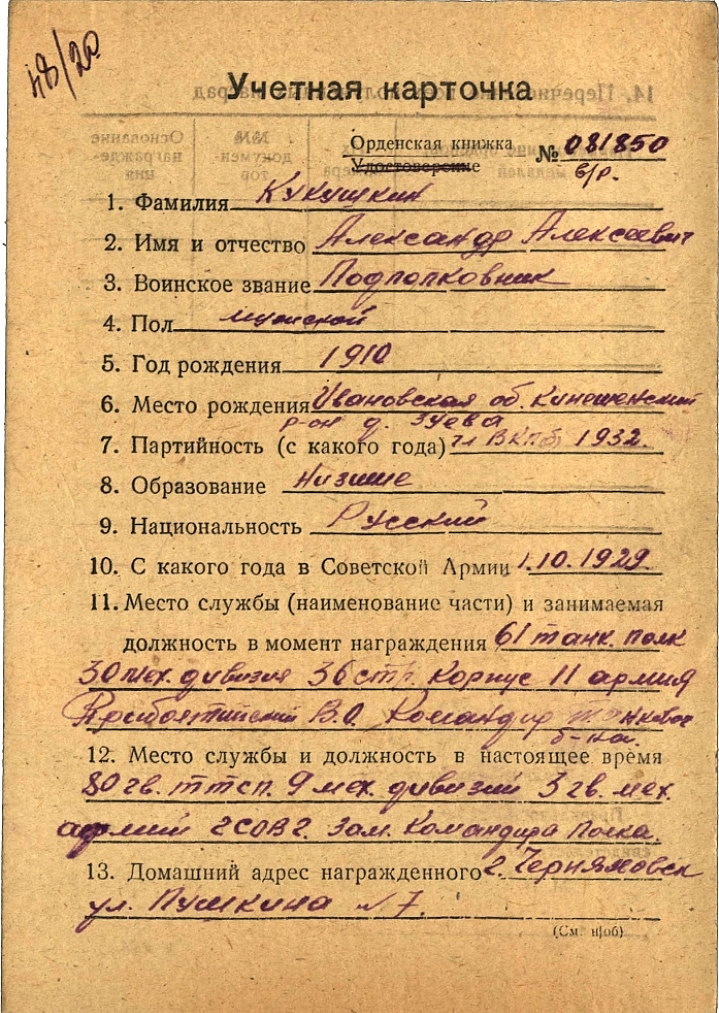 48/20
Учетная карточка
Орденская книжка
Удостоверение № 081850
в/р.
1. Фамилия Кукушкин
2. Имя и отчество Александр Алексеевич
3. Воинское звание Подполковник
4. Пол мужской
5. Год рождения 1910
6. Место рождения Ивановская об. Кинешемский
р-он д. Зуева
7. Партийность (с какого года) чл ВКПб 1932.
8. Образование Низшие
9. Национальность Русский
10. С какого года в Советской Армии 1.10.1929.
11. Место службы (наименование части) и занимаемая
должность в момент награждения 61 танк. полк
30 мех. дивизия 36 стр. Корпус 11 армия
Прибалтийский В.О. Командир танкового
б-на.
12. Место службы и должность в настоящее время
80 гв. ттсп. 9 мех. дивизии 3 гв. мех.
армии ГСОВГ. Зам. Командира Полка.
13. Домашний адрес награжденного г. Черняховск
ул. Пушкина № 7.
(См. н/об)